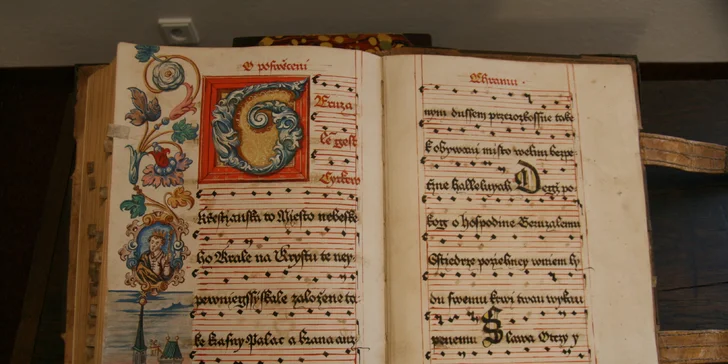 O poswěcenij
Geruza
le gest
Cyrkew
Křestianska to Miesto nebeske
ho Krale na Krystu te ney
pewniegssy skale založeno to
ke krasny Palac a brana anz
Chramu.
nym dussem przerozkossne take
k obywani misto welmi bezpe
čne halleluyah Degž po
kog o hospodine Geruzalemu
Sstiedrze požehney wniem ly
du swemu krwi twau wykau
penemu Slawa Otczy y